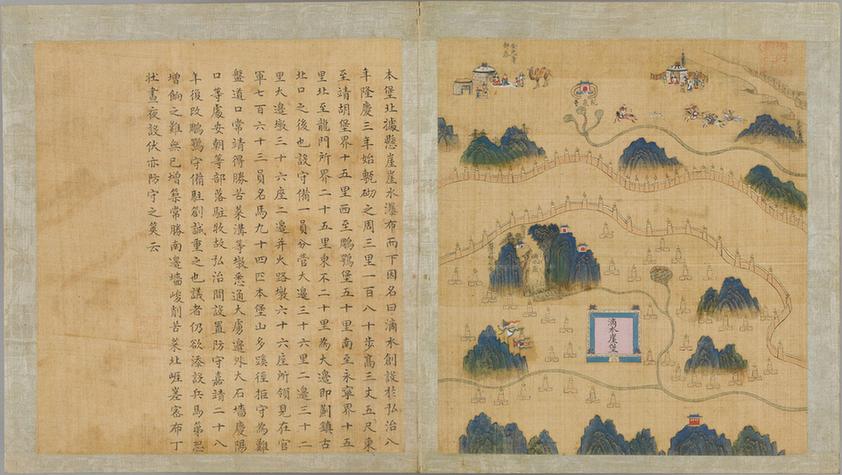 本堡北據懸崖崖水瀑布而下因名曰滴水創設於弘治八
年隆慶三年始甎砌之周三里一百八十步高三丈五尺東
至靖胡堡界十五里西至鵰鶚堡五十里南至永寧界十五
里北至龍門所界二十五里東不二十里為大邊即薊鎮古
北口之後也設守備一員分管大邊三十六里二邊三十二
里大邊墩三十六座二邊并火路墩六十六座所領見在官
軍七百六十三員名馬九十四匹本堡山多蹊徑拒守為難
盤道口常靖得勝苦菜溝等墩悉通大虜邊外大石墻慶陽
口等處安朝等部落駐牧故弘治間設置防守嘉靖二十八
年復改鵰鶚守備駐劄誠重之也議者仍欲添設兵馬第恐
增餉之難無已增築常勝南邊墻峻削苦菜北崕密布丁
壯晝夜設伏亦防守之筴云
滴水崖堡